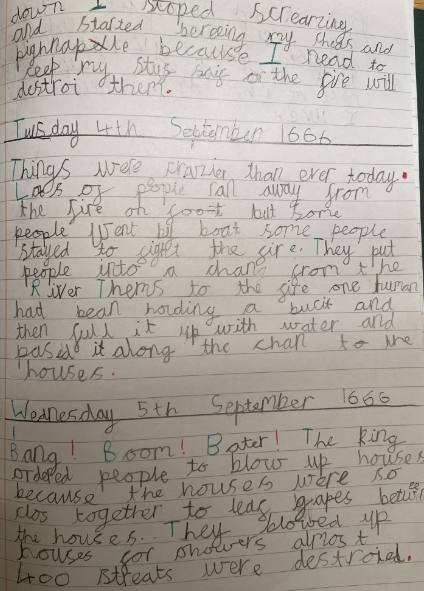 down I stoped screarzing
and started bercing my chees and
pighnapple because I nead to
keep my stus saif or the fire will
destroi them.
Tuisday 4th September 1666
Things were crazier than ever today.
Lots of people ran away from
the fire on foot but some
people went by boat some people
stayed to fight the fire. They put
people into a chan from the
River Thems to the fire one human
had bean holding a bucit and
then full it up with water and
pased it along the chan to the
houses.
Wednesday 5th September 1666
Bang! Boom! Bater! The king
ordered people to blow up houses
because the houses were so
clos together to leav gapes betwee
the houses. They blowed up
houses for showers almost
400 streats were destroied.